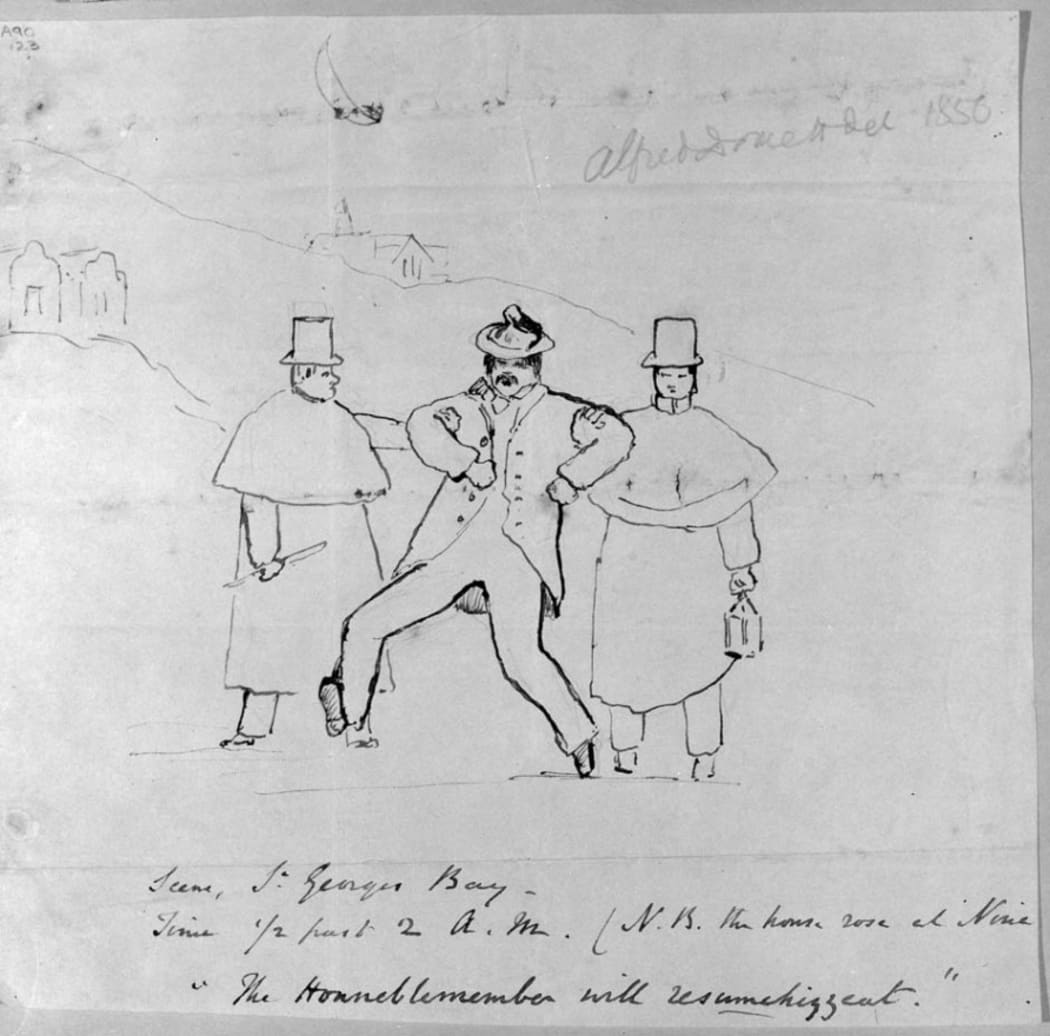 A90
123
Alfred Domett Del 1850
Scene, St Georges Bay -
Time 1/2 past 2 A.M. (N.B. the house rose at Nine
"The Honneblemember will resumehizzeat."